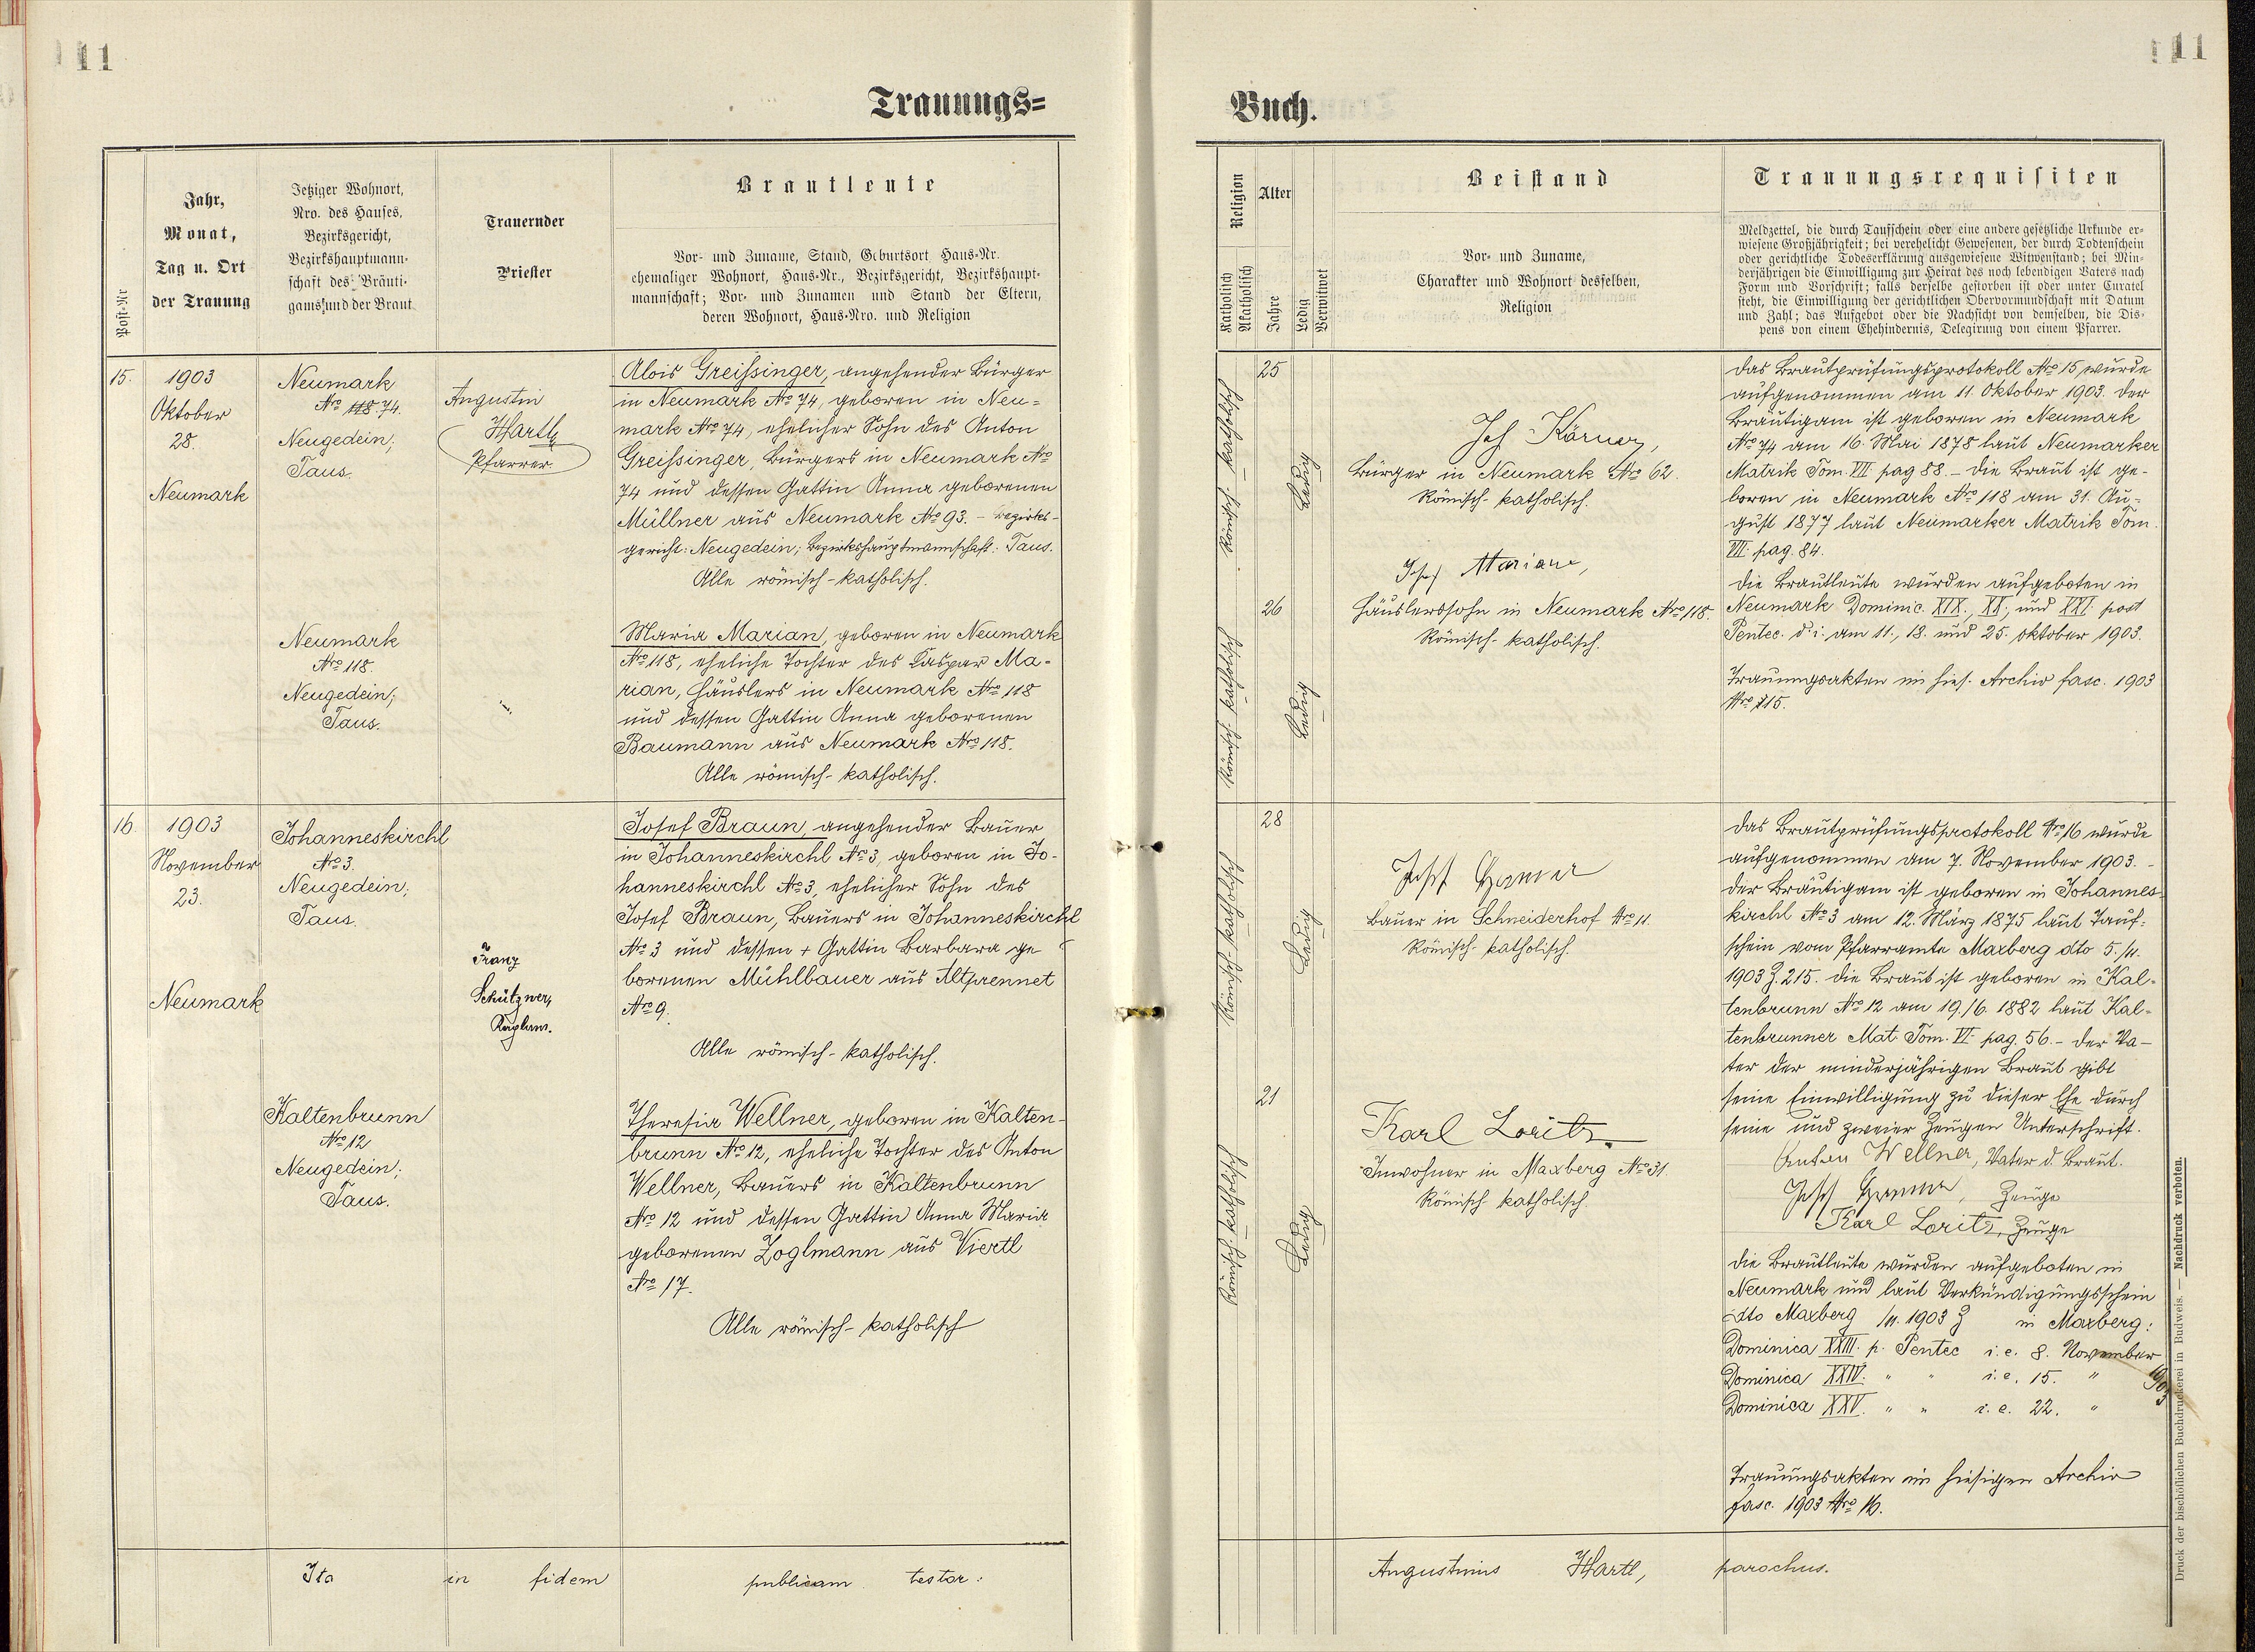 11
11
Trauungs=
Buch.
Post-Nr
Jahr,
Monat,
Tag u. Ort
der Trauung
Jetziger Wohnort,
Nro. des Hauses,
Bezirksgericht,
Bezirkshauptmann-
schaft des Bräuti-
gams und der Braut
Trauernder
Priester
Brautleute
Vor- und Zuname, Stand, Geburtsort Haus-Nr.
ehemaliger Wohnort, Haus-Nr., Bezirksgericht, Bezirkshaupt-
mannschaft; Vor- und Zunamen und Stand der Eltern,
deren Wohnort, Haus-Nro. und Religion
Religion
Katholisch
Akatholisch
Alter
Jahre
Ledig
Verwitwet
Beistand
Vor- und Zuname,
Charakter und Wohnort desselben,
Religion
Trauungsrequisiten
Meldzettel, die durch Taufschein oder eine andere gesetzliche Urkunde er-
wiesene Großjährigkeit; bei verehelicht Gewesenen, der durch Todtenschein
oder gerichtliche Todeserklärung ausgewiesene Witwenstand; bei Min-
derjährigen die Einwilligung zur Heirat des noch lebendigen Vaters nach
Form und Vorschrift; falls derselbe gestorben ist oder unter Curatel
steht, die Einwilligung der gerichtlichen Obervormundschaft mit Datum
und Zahl; das Aufgebot oder die Nachsicht von demselben, die Dis-
pens von einem Ehehindernis, Delegirung von einem Pfarrer.
15.
1903
Oktober
28.
Neumark
Neumark
Nro 118 74.
Neugedein;
Taus.
Augustin
Hartl,
Pfarrer
Alois Greissinger, angehender Bürger
in Neumark Nro 74, geboren in Neu=
mark Nro 74, ehelicher Sohn des Anton
Greissinger, Bürgers in Neumark Nro
74 und dessen Gattin Anna geborenen
Müllner aus Neumark Nro 93. - Bezirks-
gericht: Neugedein; Bezirkshauptmannschaft: Taus.
Alle römisch-katholisch.
Neumark
Nro 118.
Neugedein;
Taus.
Maria Marian, geboren in Neumark
Nro 118, eheliche Tochter des Kaspar Ma-
rian, Häuslers in Neumark Nro 118
und dessen Gattin Anna geborenen
Baumann aus Neumark Nro 118.
Alle römisch-katholisch.
Römisch-katholisch
25
Ledig
Jos Körner,
Bürger in Neumark Nro 62.
Römisch-katholisch.
Römisch-katholisch
26
Ledig
Josef Marian,
Häuslerssohn in Neumark Nro 118.
Römisch-katholisch.
Das Brautprüfungsprotokoll Nro 15 wurde
aufgenommen am 11. Oktober 1903. Der
Bräutigam ist geboren in Neumark
Nro 74 am 16. Mai 1878 laut Neumarker
Matrik Tom. VII pag 88. - Die Braut ist ge-
boren in Neumark Nro 118 am 31. Au-
gust 1877 laut Neumarker Matrik Tom.
VII. pag. 84.
Die Brautleute wurden aufgeboten in
Neumark Dominic. XIX., XX., und XXI. post
Pentec. d. i. am 11., 18. und 25. Oktober 1903.
Trauungsakten im hies. Archiv fasc. 1903
Nro 15.
16.
1903
November
23.
Neumark
Johanneskirchl
Nro 3.
Neugedein;
Taus.
Franz
Schützner,
Kaplan.
Josef Braun, angehender Bauer
in Johanneskirchl Nro 3, geboren in Jo-
hanneskirchl Nro 3, ehelicher Sohn des
Josef Braun, Bauers in Johanneskirchl
Nro 3 und dessen + Gattin Barbara ge
borenen Mühlbauer aus Altprennet
Nro 9.
Alle römisch-katholisch.
Kaltenbrunn
Nro 12
Neugedein;
Taus.
Theresia Wellner, geboren in Kalten-
brunn Nro 12, eheliche Tochter des Anton
Wellner, Bauers in Kaltenbrunn
Nro 12 und dessen Gattin Anna Maria
geborenen Zoglmann aus Viertl
Nro 17.
Alle römisch-katholisch
Römisch-katholisch
28
Ledig
Josef
Bauer in Schneiderhof Nro 11.
Römisch-katholisch.
Römisch-katholisch
21
Ledig
Karl Loritz.
Inwohner in Maxberg Nro 31.
Römisch katholisch.
Das Brautprüfungsprotokoll Nro 16 wurde
aufgenommen am 7. November 1903. -
Der Bräutigam ist geboren in Johannes
kirchl Nro 3 am 12. März 1875 laut Tauf-
schein vom Pfarramte Maxberg dto 5./11.
1903 Z. 215. Die Braut ist geboren in Kal-
tenbrunn Nro 12 am 19./6. 1882 laut Kal-
tenbrunner Mat. Tom. VI. pag. 56. - Der Va-
ter der minderjährigen Braut gibt
seine Einwilligung zu dieser Ehe durch
seine und zweier Zeugen Unterschrift.
Anton Wellner, Vater d. Braut.
Josef Zeuge
Karl Loritz, Zeuge
Die Brautleute wurden aufgeboten in
Neumark und laut Verkündigungsschein
dto Maxberg /11. 1903 Z in Maxberg:
Dominica XXIII. p. Pentec i.e. 8. November
Dominica XXIV. " " i.e. 15. " 1903
Dominica XXV. " " i.e. 22. "
Trauungsakten im hiesigen Archiv
fasc. 1903 Nro 16.
Ita in fidem publicam testor:
Augustinus Hartl, parochus.
Druck der bischöflichen Buchdruckerei in Budweis. — Nachdruck verboten.